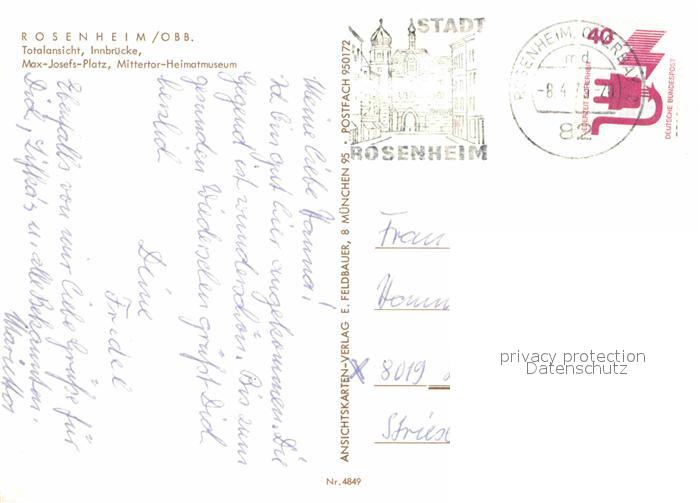 ROSENHEIM/OBB.
Totalansicht, Innbrücke,
Max-Josefs-Platz, Mittertor-Heimatmuseum
Meine liebe Hanna!
Ich bin gut hier angekommen. Die
Gegend ist wunderschön. Bis zum
gesunden Wiedersehen grüßt Dich
herzlich
Deine
Friedel
Ebenfalls von mir liebe Grüße für
Dich, u. alle Bekannten.
Marietta
ANSICHTSKARTEN-VERLAG E. FELDBAUER, 8 MÜNCHEN 95 · POSTFACH 950172
STADT
ROSENHEIM
ROSENHEIM, OBERBAY
md
-8.4.
82
40
JEDERZEIT SICHERHEIT
DEUTSCHE BUNDESPOST
Frau
Hann
8019
Striese
privacy protection
Datenschutz
Nr. 4849